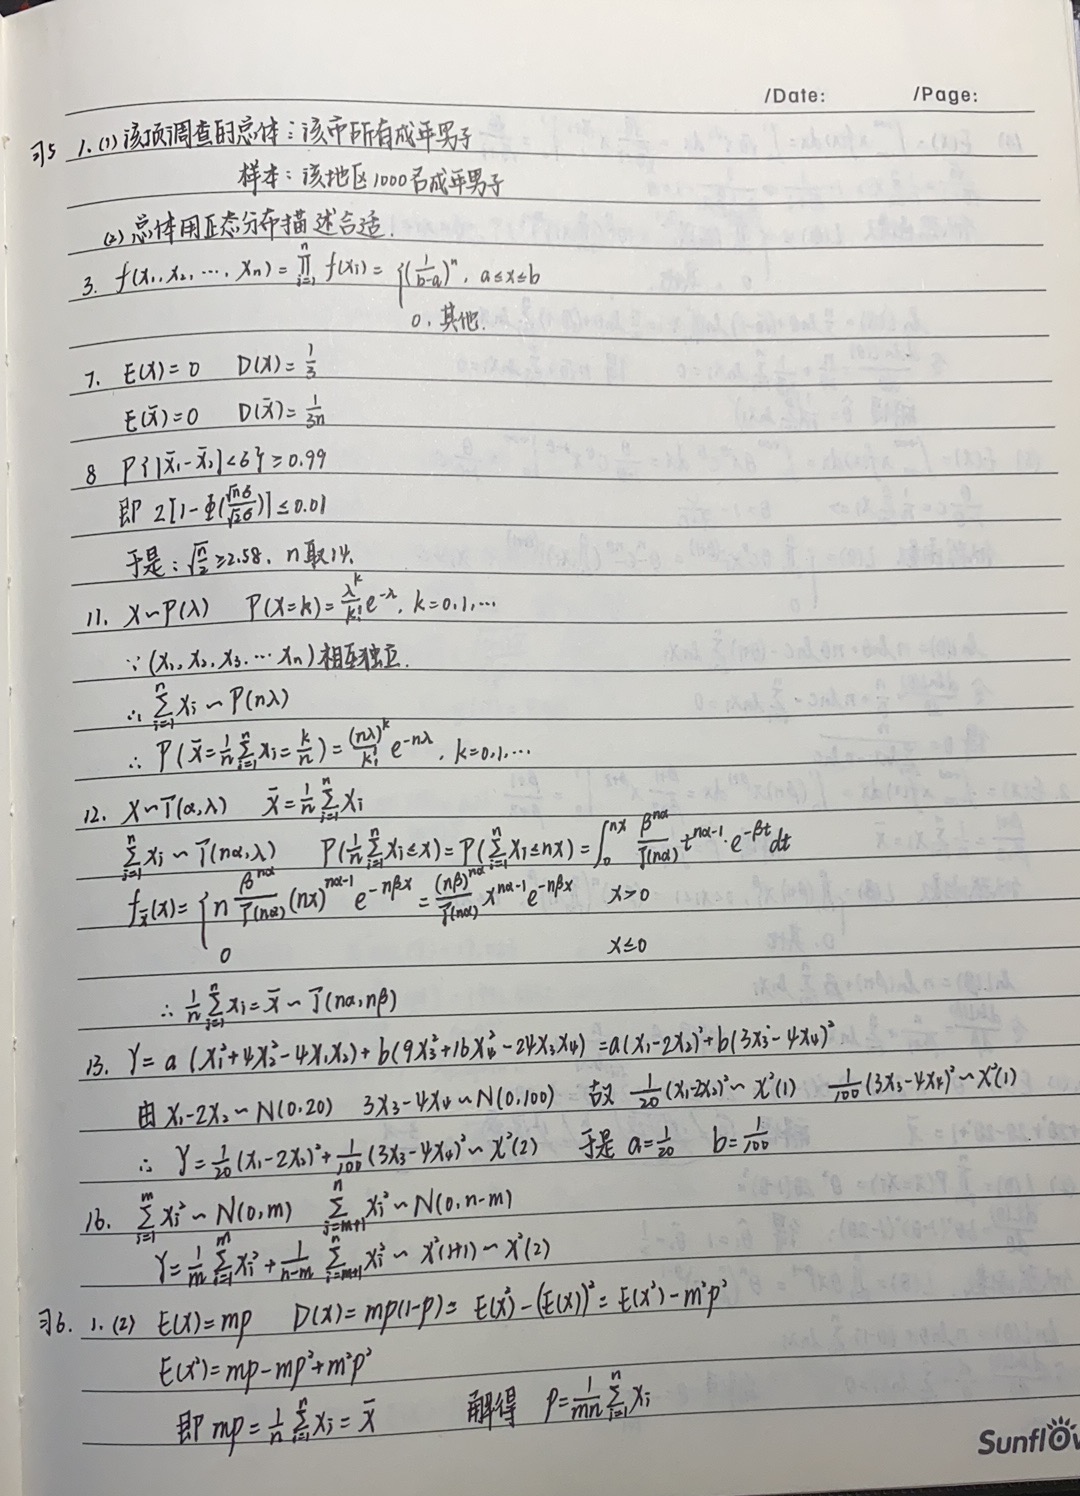 /Date: /Page:
习5 1.(1)该项调查的总体：该市所有成年男子
样本：该地区1000名成年男子
(2)总体用正态分布描述合适.
3. f(x₁,x₂,…,xₙ)=∏ⁿᵢ₌₁ f(xᵢ)={(1/(b-a))ⁿ, a≤x≤b
0,其他.
7. E(X)=0 D(X)=1/3
E(X̄)=0 D(X̄)=1/3n
8 P{|X̄₁-X̄₂|<σ}≥0.99
即 2[1-Φ(√nσ/√2σ)]≤0.01
于是：√(n/2)≥2.58. n取14.
11. X~P(λ) P(X=k)=λᵏ/k! e^(-λ), k=0,1,…
∵(x₁,x₂,x₃…xₙ)相互独立.
∴ ∑ⁿᵢ₌₁ xᵢ ~ P(nλ)
∴ P(X̄=1/n ∑ⁿᵢ₌₁ xᵢ=k/n)=(nλ)ᵏ/k! e^(-nλ), k=0,1,…
12. X~Γ(α,λ) X̄=1/n ∑ⁿᵢ₌₁ Xᵢ
∑ⁿᵢ₌₁ xᵢ ~ Γ(nα,λ) P(1/n ∑ⁿᵢ₌₁ xᵢ≤x)=P(∑ⁿᵢ₌₁ xᵢ≤nx)=∫₀^(nx) β^(nα)/Γ(nα) t^(nα-1)·e^(-βt)dt
f_X̄(x)={n β^(nα)/Γ(nα) (nx)^(nα-1) e^(-nβx)=(nβ)^(nα)/Γ(nα) x^(nα-1) e^(-nβx) x>0
0 x≤0
∴ 1/n ∑ⁿᵢ₌₁ xᵢ=X̄ ~ Γ(nα,nβ)
13. Y=a(X₁²+4X₂²-4X₁X₂)+b(9X₃²+16X₄²-24X₃X₄)=a(X₁-2X₂)²+b(3X₃-4X₄)²
由 X₁-2X₂~N(0,20) 3X₃-4X₄~N(0,100) 故 1/20(X₁-2X₂)²~χ²(1) 1/100(3X₃-4X₄)²~χ²(1)
∴ Y=1/20(X₁-2X₂)²+1/100(3X₃-4X₄)²~χ²(2) 于是 a=1/20 b=1/100
16. ∑ᵐᵢ₌₁ xᵢ²~N(0,m) ∑ⁿᵢ₌ₘ₊₁ xᵢ²~N(0,n-m)
Y=1/m ∑ᵐᵢ₌₁ xᵢ²+1/(n-m) ∑ⁿᵢ₌ₘ₊₁ xᵢ² ~ χ²(1+1) ~ χ²(2)
习6. 1.(2) E(X)=mp D(X)=mp(1-p)=E(X²)-(E(X))²=E(X²)-m²p²
E(X²)=mp-mp²+m²p²
即 mp=1/n ∑ⁿᵢ₌₁ xᵢ=X̄ 解得 p=1/mn ∑ⁿᵢ₌₁ xᵢ